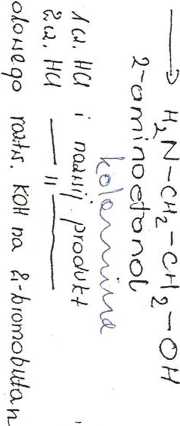 → H₂N-CH₂-CH₂-OH
2-aminoetanol
kolamina
1 cz. HCl i nazwij produkt
2 cz. HCl — 11 —
olowego roztw. KOH na 2-bromobutan